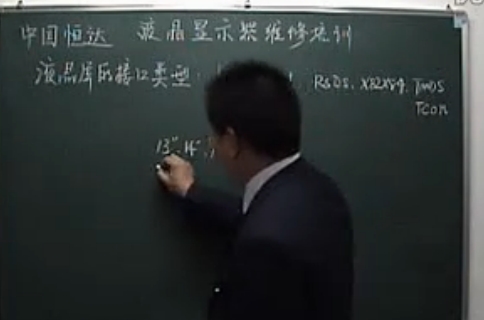 中国恒达 液晶显示器维修培训
液晶屏的接口类型: RSDS. X82X84. TMDS
TCON
13". 14".